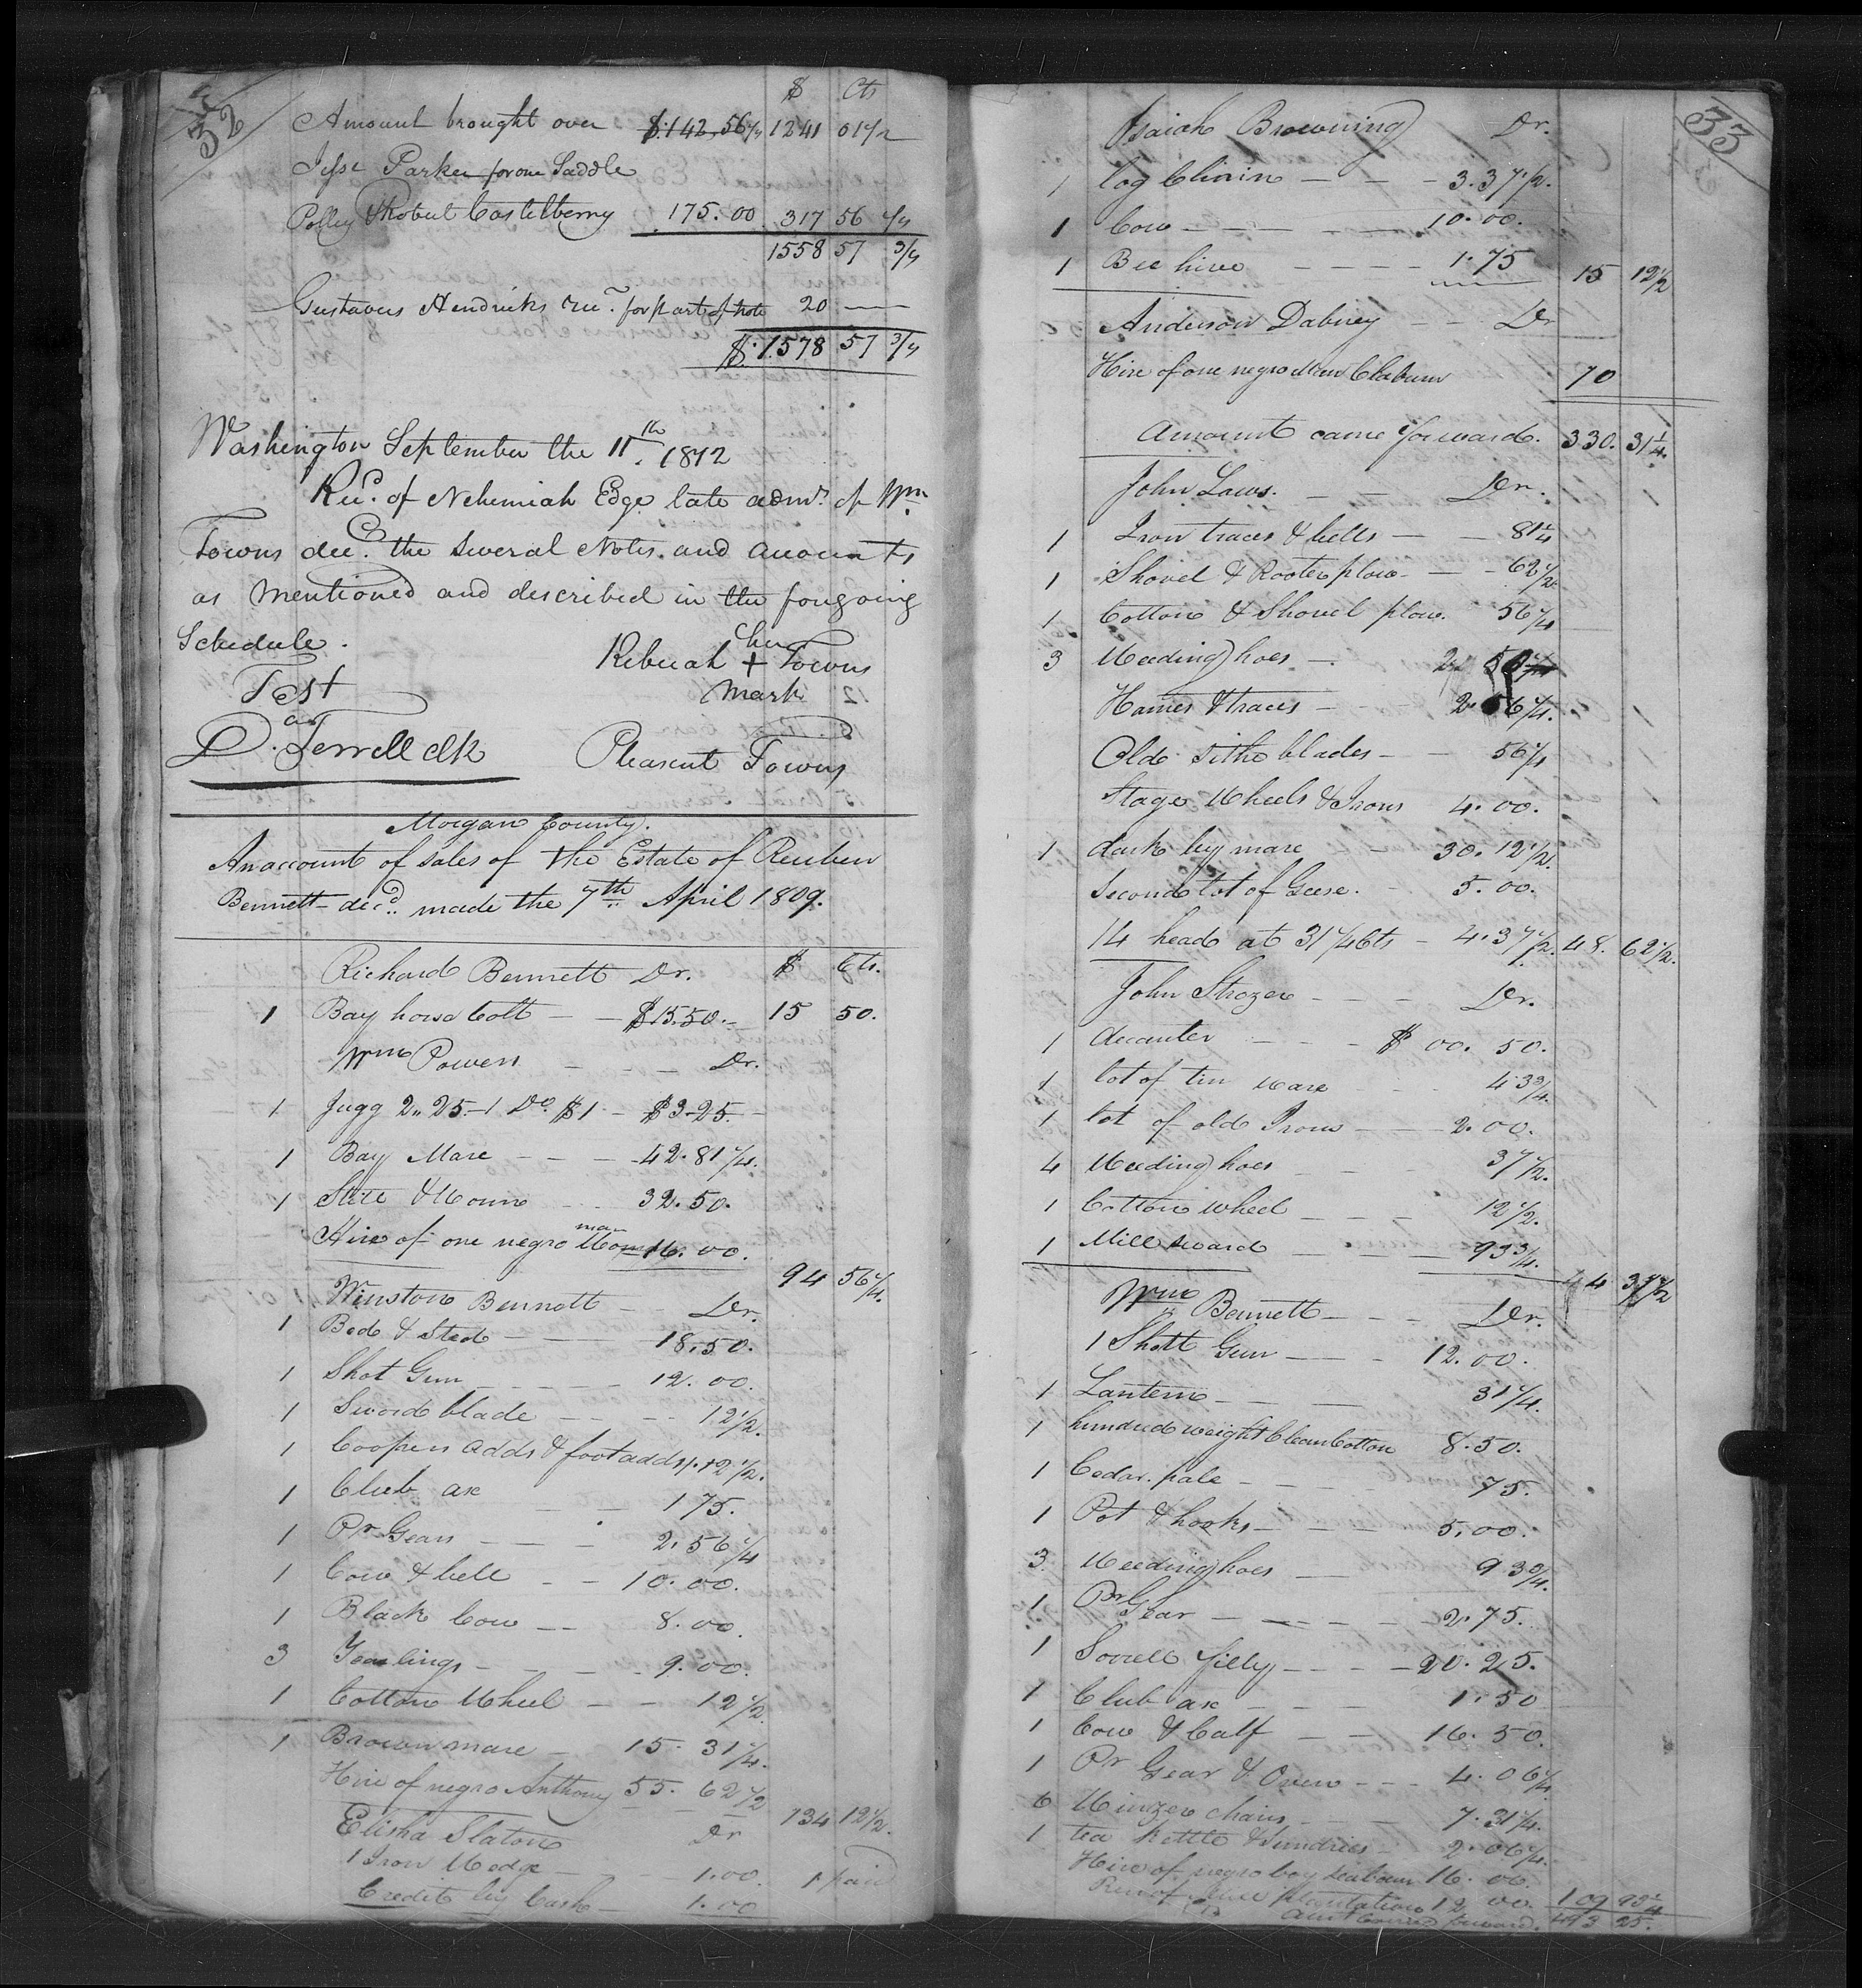 32
$ Cts
Amount brought over $142,56 1/4 1241 01 1/2
Jesse Parker for one Saddle
Polley & Robert Castelberry 175.00 317 56 1/4
1558 57 3/4
Gustavus Hendricks for part of note 20 —
$.1578 57 3/4
Washington September the 11th 1812
Recd. of Nehemiah Edge late admr. of Wm
Towns decd. the several Notes and accounts
as mentioned and described in the foregoing
Schedule.
her
Rebecah + Towns
mark
Test
D. Terrell clk
Pleasent Towns
Morgan County.
An account of sales of the Estate of Reuben
Bennett decd. made the 7th April 1809.
Richard Bennett Dr. $ Cts.
1 Bay horse Colt — $15.50. 15 50.
Wm Powers Dr.
1 Jugg 2.25 - 1 Do. $1 - $3.25
1 Bay Mare - - - 42.81 1/4.
1 Still & Worm - - 32.50.
man
Hire of one negro 16.00.
94 56 1/4.
Winston Bennett - Dr.
1 Bed & Sted - 18.50.
1 Shot Gun 12.00.
1 Sword blade - - 12 1/2.
1 Coopers adds & foot adds 1.12 1/2.
1 Club ax 175.
1 Pr. Gears 2.56 1/4
1 Cow & bell - - 10.00.
1 Black Cow - - 8.00.
3 Yearlings - - 9.00.
1 Cotton Wheel - - 12 1/2.
1 Brown mare - 15.31 1/4.
Hire of negro Anthony 55.62 1/2
134 12 1/2.
Elisha Slaton Dr
1 Iron Wedge - 1.00. 1 paid
Credit by Cash - 1.00
33
Isaiah Browning Dr.
1 Log Chain - - - 3.37 1/2.
1 Cow - - - 10.00.
1 Bee hive - - - 1.75 15 12 1/2
Anderson Dabney - - Dr
Hire of one negro Man Claburn 70
Amount came forward. 330. 31 1/4.
John Laws. - - Dr.
1 Iron traces & belts - - 81 1/4
1 Shovel & Rooter plow - - 62 1/2.
1 Cotton & Shovel plow. 56 1/4
3 Weeding hoes -
Hames & traces - 2.56 1/4.
Old sithe blades - - 56 1/4
Stage Wheels & Irons 4.00.
1 dark bey mare - 30.12 1/2.
Second lot of Geese. - 5.00.
14 head at 31 1/4 Cts - 4.37 1/2. 48. 62 1/2.
John Strozer - - Dr.
1 decanter - - - $ 00.50.
1 lot of tin ware - - 43 3/4.
1 lot of old Irons - - 2.00.
4 Weeding hoes - - 37 1/2.
1 Cotton wheel - - - 12 1/2.
1 Mill - - - 93 3/4.
4 37 1/2
Wm Bennett - - - Dr.
1 Shott Gun - - - 12.00.
1 Lantern - - - 31 1/4.
1 hundred weight Clean Cotton 8.50.
1 Cedar pale - - - 75.
1 Pot & hooks - - - 5.00.
3 Weeding hoes - 93 3/4.
1 Pr Gear - - - 2.75.
1 Sorrell filly - - - 20.25.
1 Club ax - - - 1.50
1 Cow & Calf - - 16.50.
1 Pr Gear & Oven - - - 4.06 1/4
6 Winzer chairs - - 7.31 1/4.
1 tea kettle & Sundries - 2.06 1/4.
Hire of negro boy 16.00.
Rent of plantation 12.00. 109 93 3/4
Amt carried forward. 493 25.